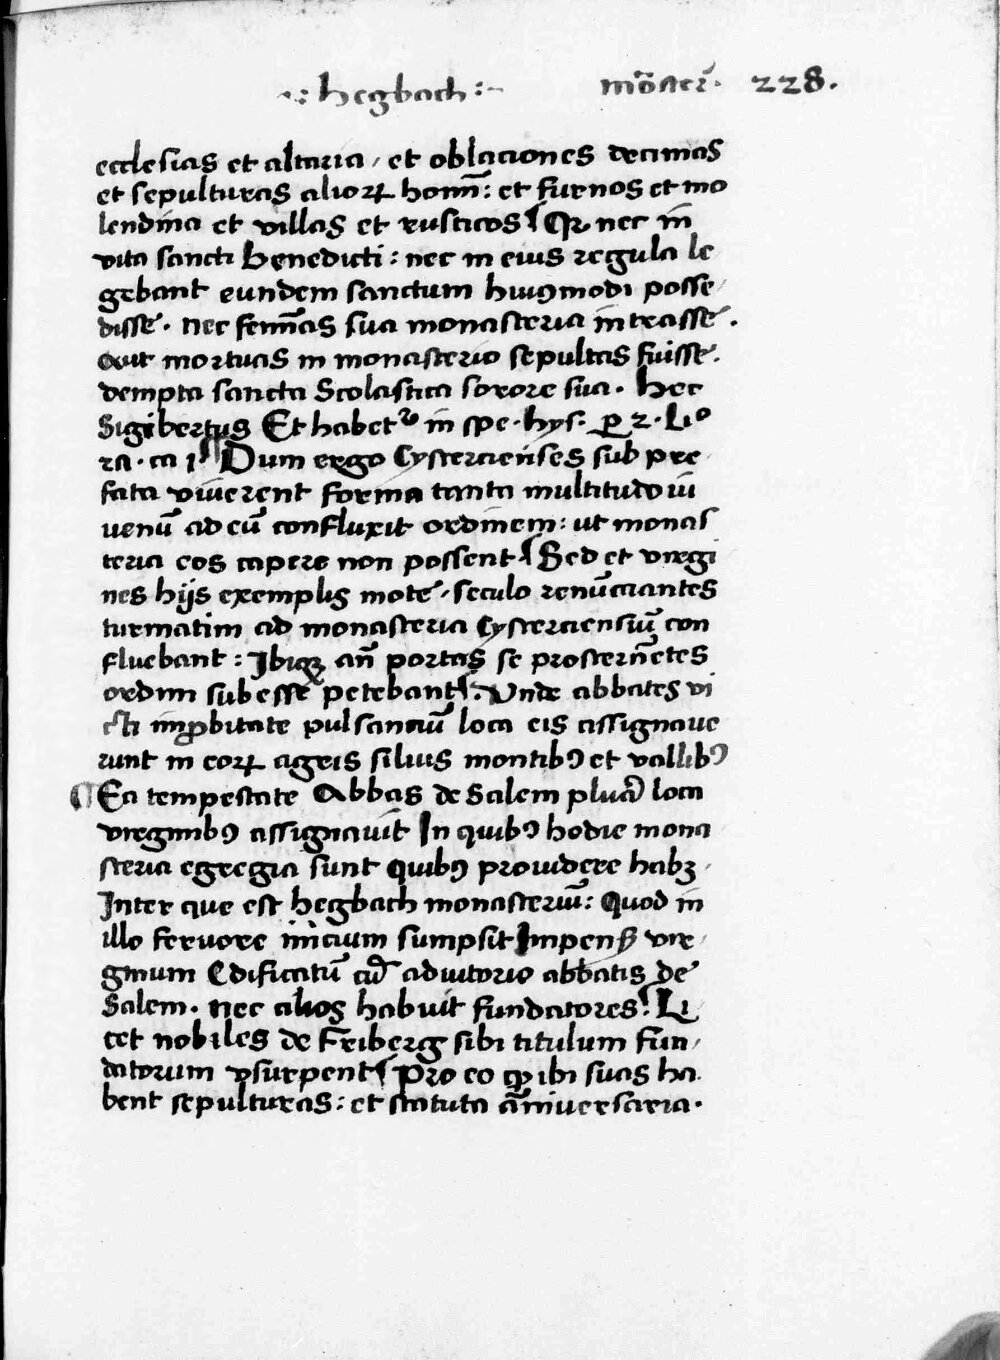 ·: hegbach :~ mōster̄· 228.
ecclesias et altaria, et oblaciones decimas
et sepulturas alioꝝ homī: et furnos et mo
lendina et villas et rusticos Qꝛ nec in
vita sancti Benedicti: nec in eius regula le
gebant eundem sanctum huiꝰmodi posse
disse. nec feminas sua monasteria intrasse.
aut mortuas in monasterio sepultas fuisse.
dempta sancta Scolastica sorore sua. hec
Sigibertus Et habetᷣ in spe. hys. ꝑ 2. Liº
ra. ca 1 Dum ergo Cystercienses sub pre
fata viverent forma tanta multitudo iu
uenū ad eū confluxit ordinem: ut monas
teria eos capere non possent Sed et virgi
nes hijs exemplis mote, seculo renūciantes
turmatim ad monasteria Cysterciensiū con
fluebant: Ibiqꝫ an̄ portas se prostern̄etes
ordini subesse petebant. Unde abbates vi
cti imꝓbitate pulsanciū loca eis assignaue
runt in eoꝝ agris siluis montibꝰ et vallibꝰ
¶ Ea tempestate Abbas de Salem plura loca
virginibꝰ assignauit In quibꝰ hodie mona
steria egregia sunt quibꝰ prouidere habꝫ
Inter que est hegbach monasteriū: Quod in
illo feruore inicium sumpsit Impensꝭ vir
ginum Edificatū cū adiutorio abbatis de
Salem. nec alios habuit fundatores. Li
cet nobiles de Friberg sibi titulum fun
datorum vsurpent Pro eo ꝙ ibi suas ha
bent sepulturas: et statuta an̄iuersaria.